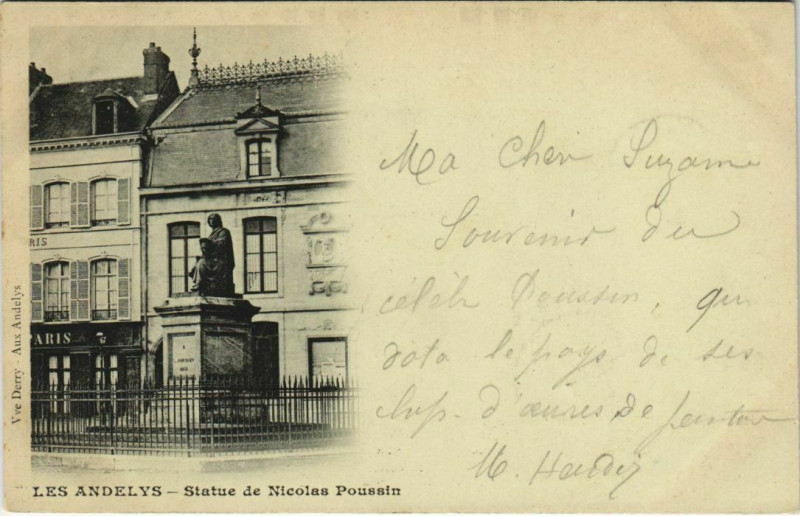 Ma Cher Suzanne
Souvenir du
célèb Poussin, qui
dota le pays de ses
chefs d'œuvres de peintur
M. Hardy
RIS
PARIS
Vve Derry - Aux Andelys
LES ANDELYS – Statue de Nicolas Poussin